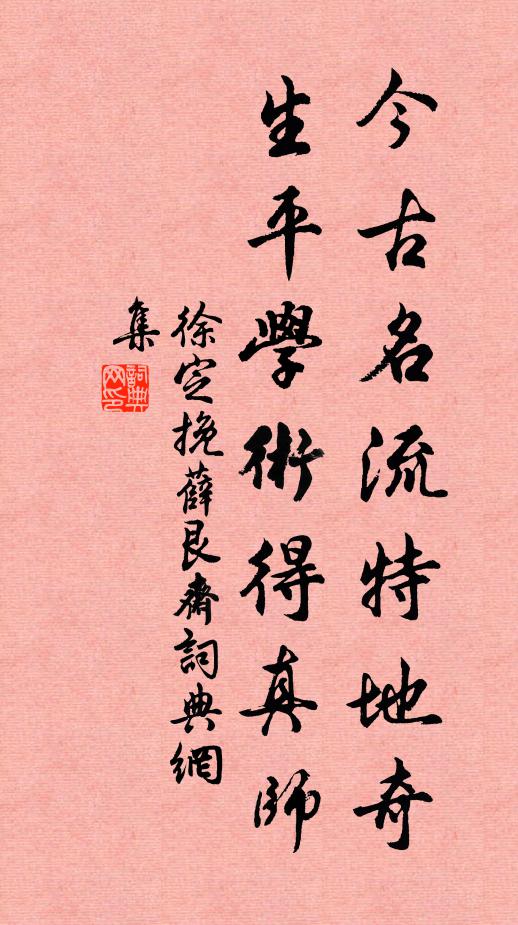 今古名流特地奇
生平學術得真師
徐定挽薛艮齋詞典網
集
詞典
网印